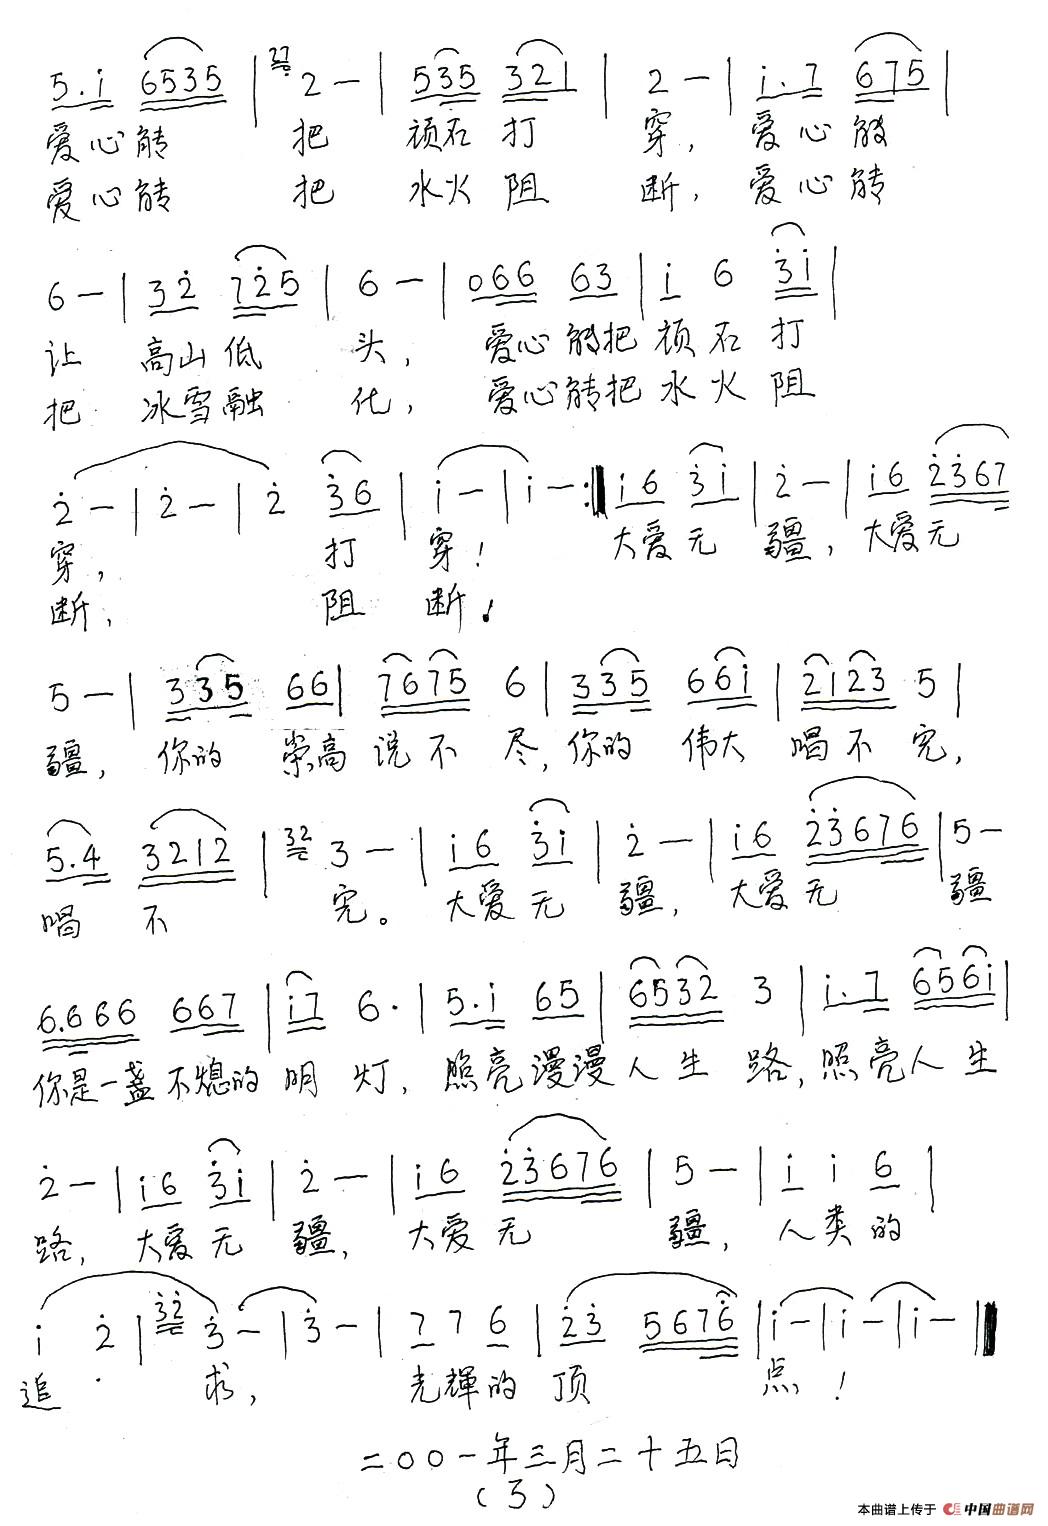 5.i 6535 | 37 2 — | 535 321 | 2 — | i.7 675 |
爱心能 把 顽石打 穿，爱心能
爱心能 把 水火阻 断，爱心能
6 — | 32 725 | 6 — | 066 63 | i 6 3i |
让 高山低 头，爱心能把顽石打
把 冰雪融 化，爱心能把水火阻
2 — | 2 — | 2 36 | i — | i — :‖ i6 3i | 2 — | i6 2367
穿， 打 穿！ 大爱无 疆，大爱无
断， 阻 断！
5 — | 335 66 | 7675 6 | 335 66i | 2123 5 |
疆，你的 崇高 说不 尽，你的 伟大 唱不 完，
5.4 3212 | 32 3 — | i6 3i | 2 — | i6 23676 | 5 —
唱 不 完。大爱无 疆，大爱无 疆
6.666 667 | i7 6. | 5.i 65 | 6532 3 | i.7 656i |
你是一盏不熄的 明 灯，照亮漫漫人生 路，照亮人生
2 — | i6 3i | 2 — | i6 23676 | 5 — | i i 6 |
路，大爱无 疆，大爱无 疆，人类的
i 2 | 32 3 — | 3 — | 7 7 6 | 23 5676 | i — | i — | i — ‖
追 求，光輝的 顶 点！
二〇〇一年三月二十五日
(3)
本曲谱上传于 中国曲谱网